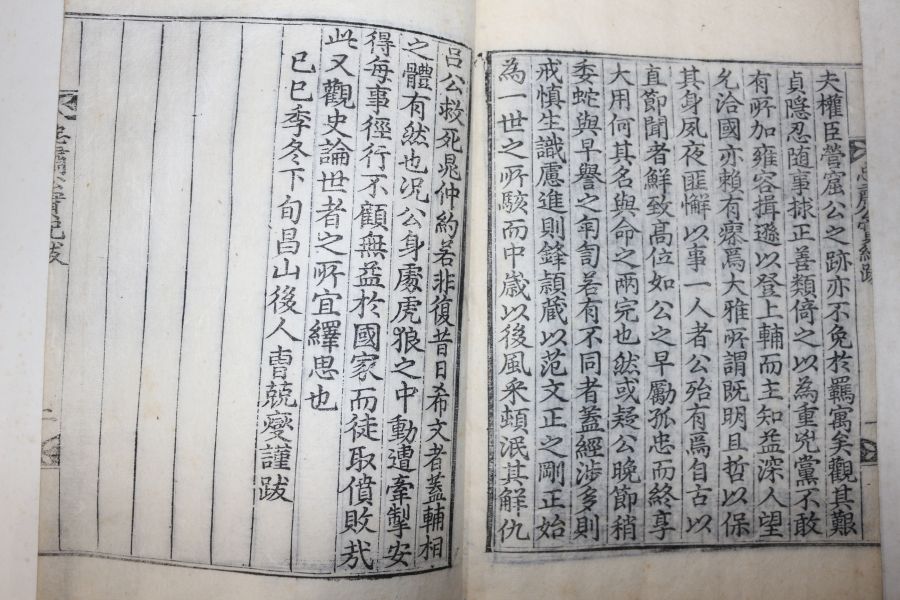 夫權臣營窟公之跡亦不免於羈寓矣觀其艱
貞隱忍随事捄正善類倚之以為重兇黨不敢
有所加雍容揖遜以登上輔而主知益深人望
允洽國亦賴有瘳焉大雅所謂既明且哲以保
其身夙夜匪懈以事一人者公殆有焉自古以
直節聞者鮮致高位如公之早勵孤忠而終享
大用何其名與命之兩完也然或疑公晩節稍
委蛇與早譽之有若有不同者蓋經渉多則
戒慎生識慮進則鋒頴蔵以范文正之剛正始
為一世之所駭而中歲以後風采頓泯其解仇
呂公救死晁仲約若非復昔日希文者蓋輔相
之體有然也况公身處虎狼之中動遭牽掣安
得每事徑行不顧無益於國家而徒取僨敗㢤
此又觀史論世者之所宜繹思也
己巳季冬下旬昌山後人曺兢燮謹跋
實紀跋
二
一